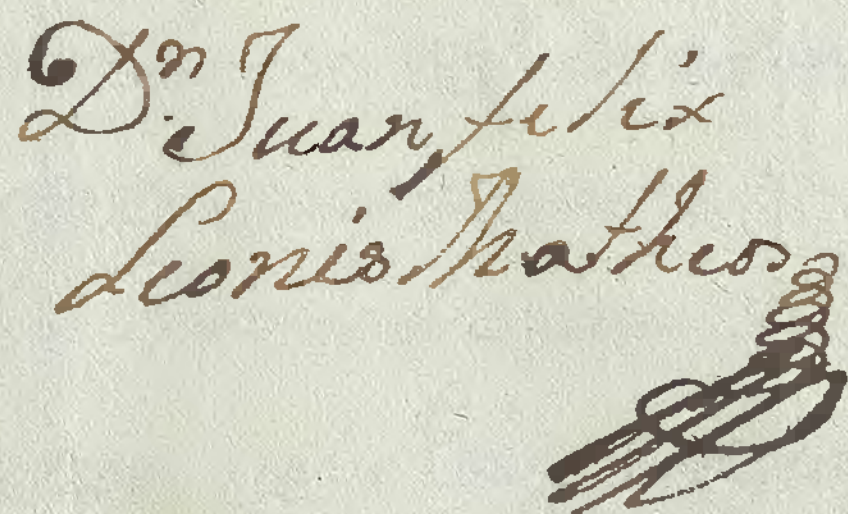 Dn. Juan felix
Leonis Matheos